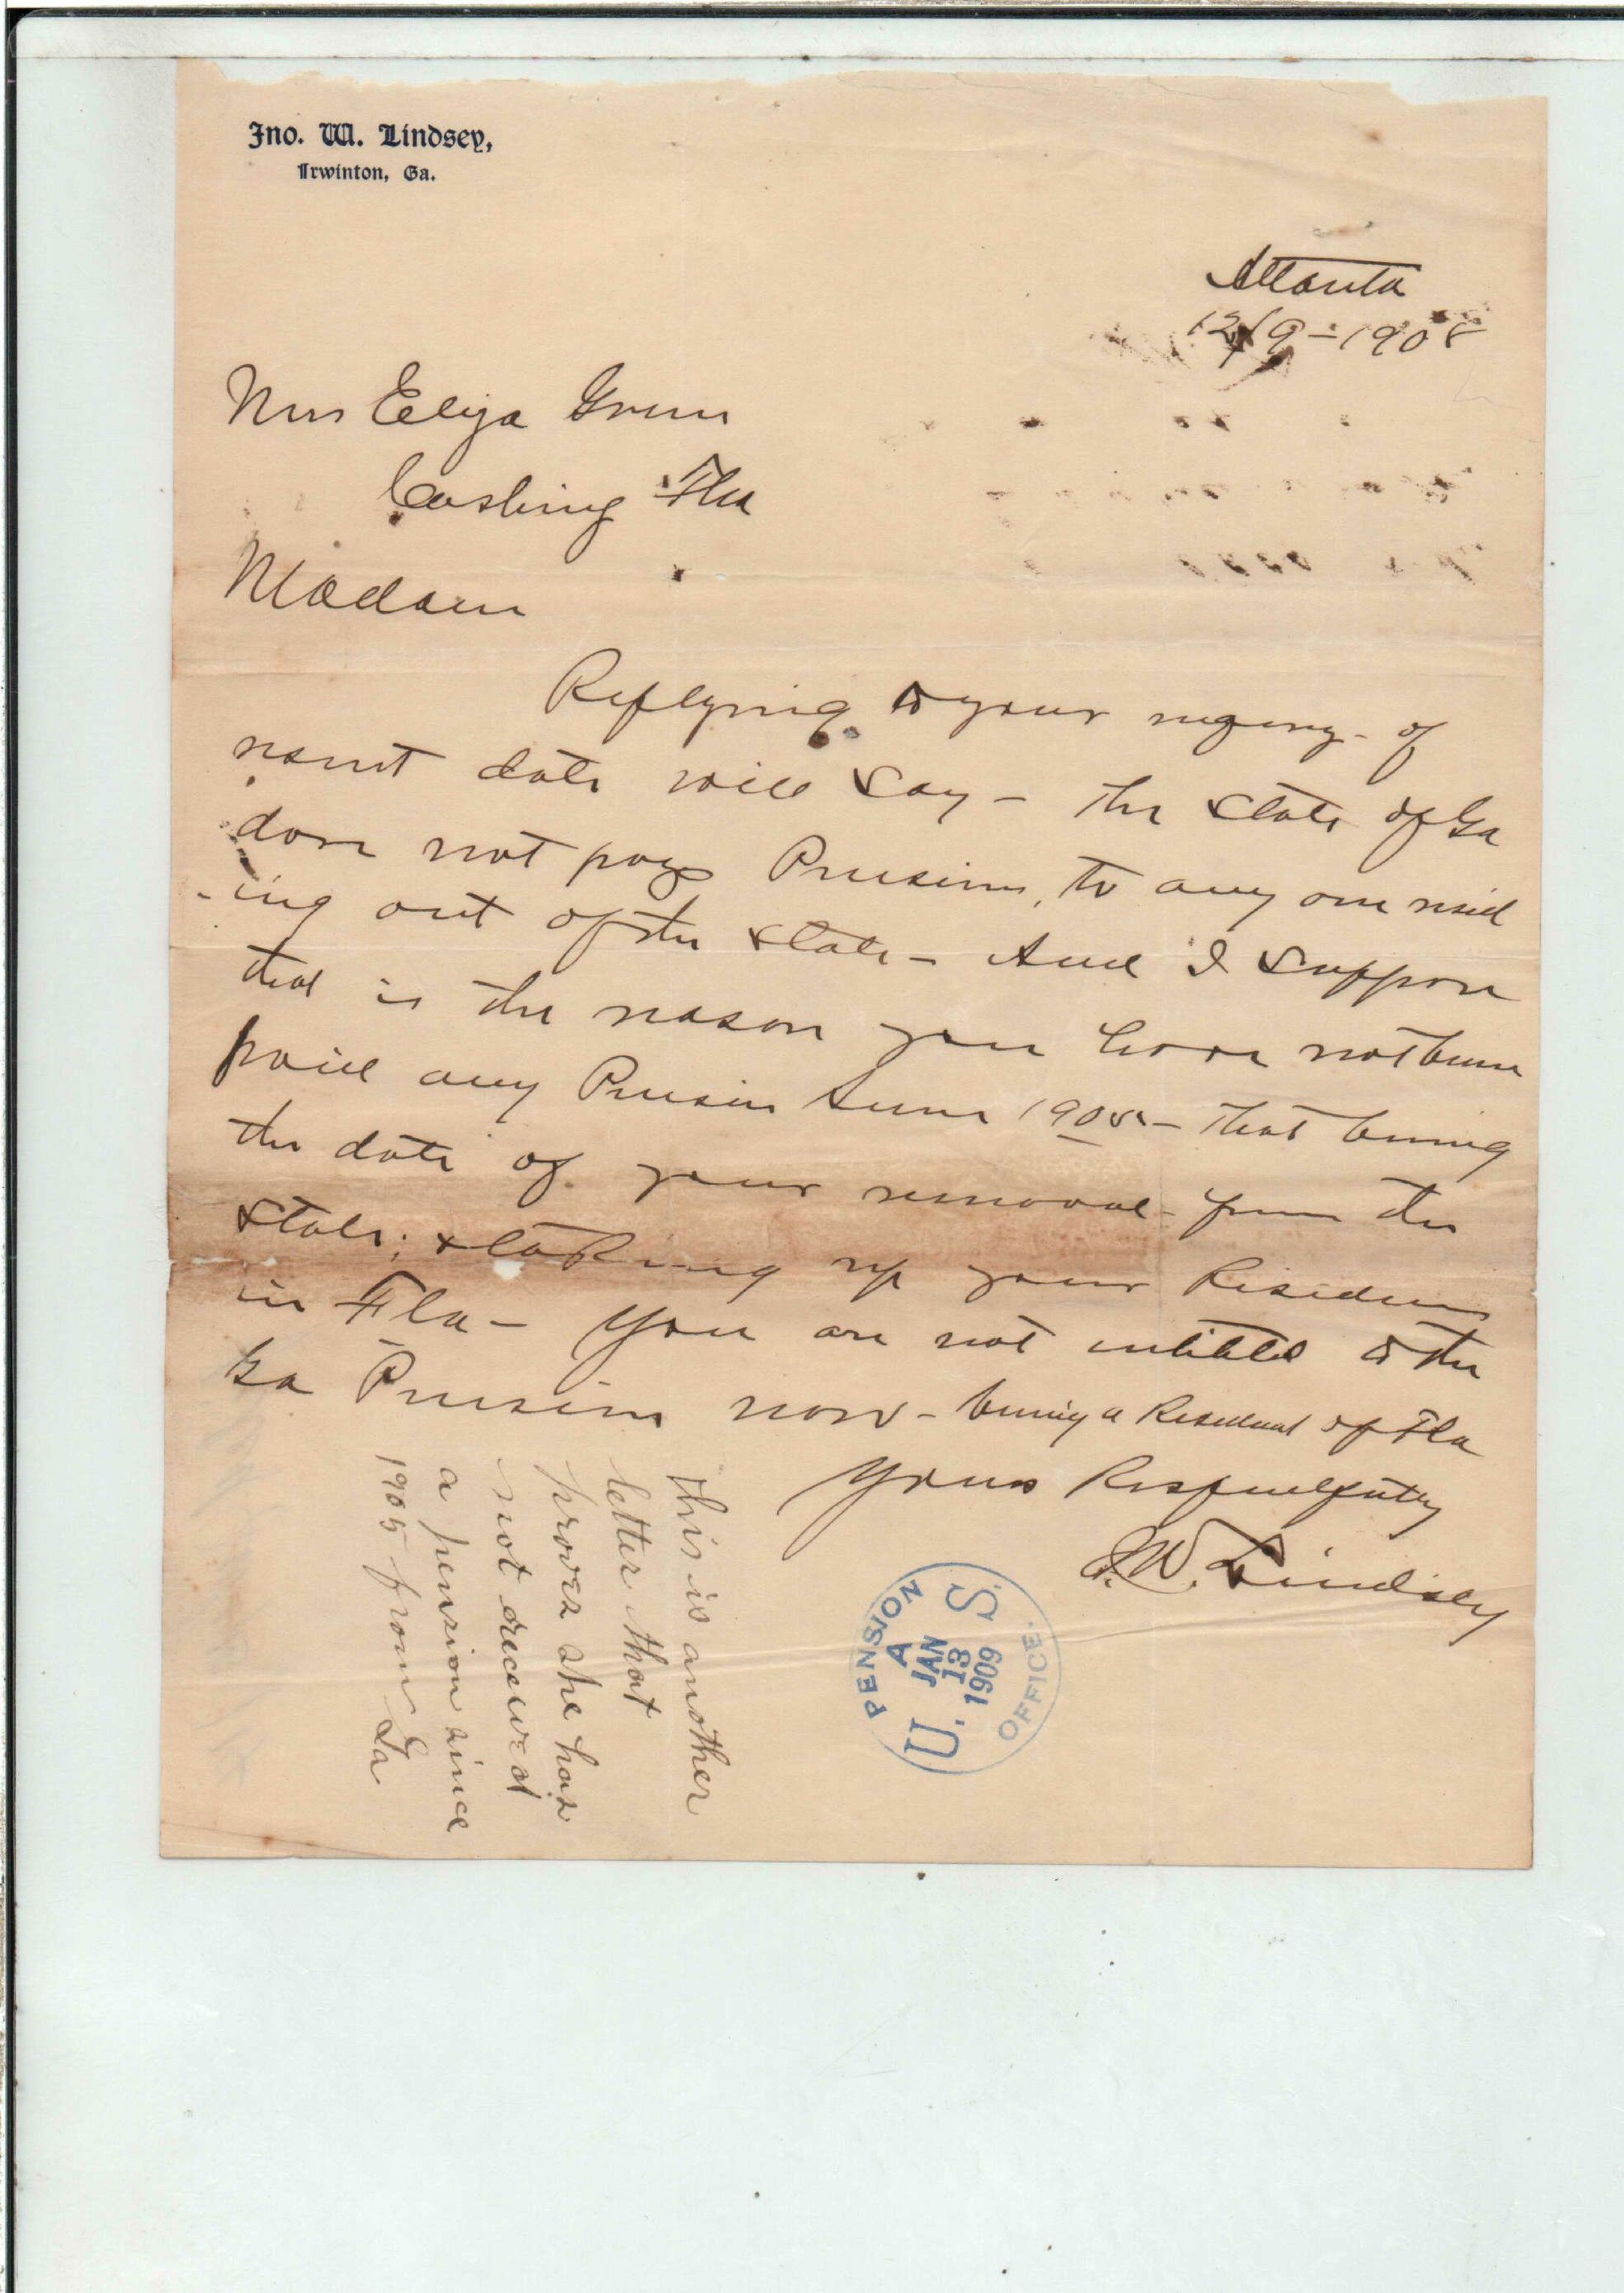 Jno. W. Lindsey,
Irwinton, Ga.
Atlanta
12/9-1908
Mrs Eliza Green
Cushing Fla
Madam
Replying to your inquiry - of
recent date will say - the State of Ga
does not pay Pensions, to any one resid
-ing out of the State - And I suppose
that is the reason you have not been
paid any Pension since 1905 - that being
the date of your removal - from the
State; & taking up your Residence
in Fla - You are not entitled to the
Ga Pension now - being a Resident of Fla
Yours Respectfully
J. W. Lindsey
this is another
letter that
proves she has
not received
a pension since
1905 from Ga
PENSION
A
JAN
13
1909
U. S.
OFFICE.